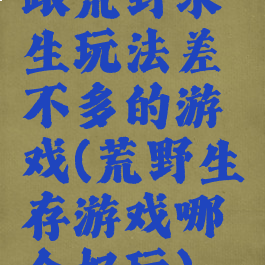 跟荒野求
生玩法差
不多的游
戏(荒野生
存游戏哪
个好玩)